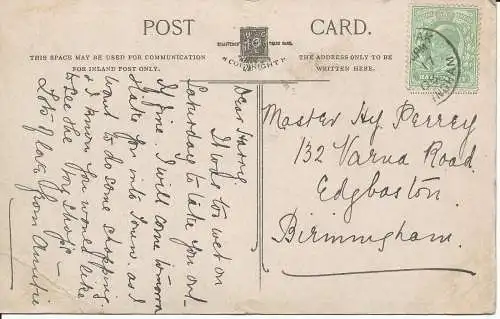 POST CARD.
THIS SPACE MAY BE USED FOR COMMUNICATION
FOR INLAND POST ONLY.
THE ADDRESS ONLY TO BE
WRITTEN HERE.
COPYRIGHT
Dear Harry
It was too wet on
Saturday to take you out-
if fine I will come tomorrow
& take you into Town as I
want to do some shopping
& I know you would like
to see the Toy shops
Lots of love from Auntie
Master Hy Perrey
132 Varna Road
Edgbaston.
Birmingham.